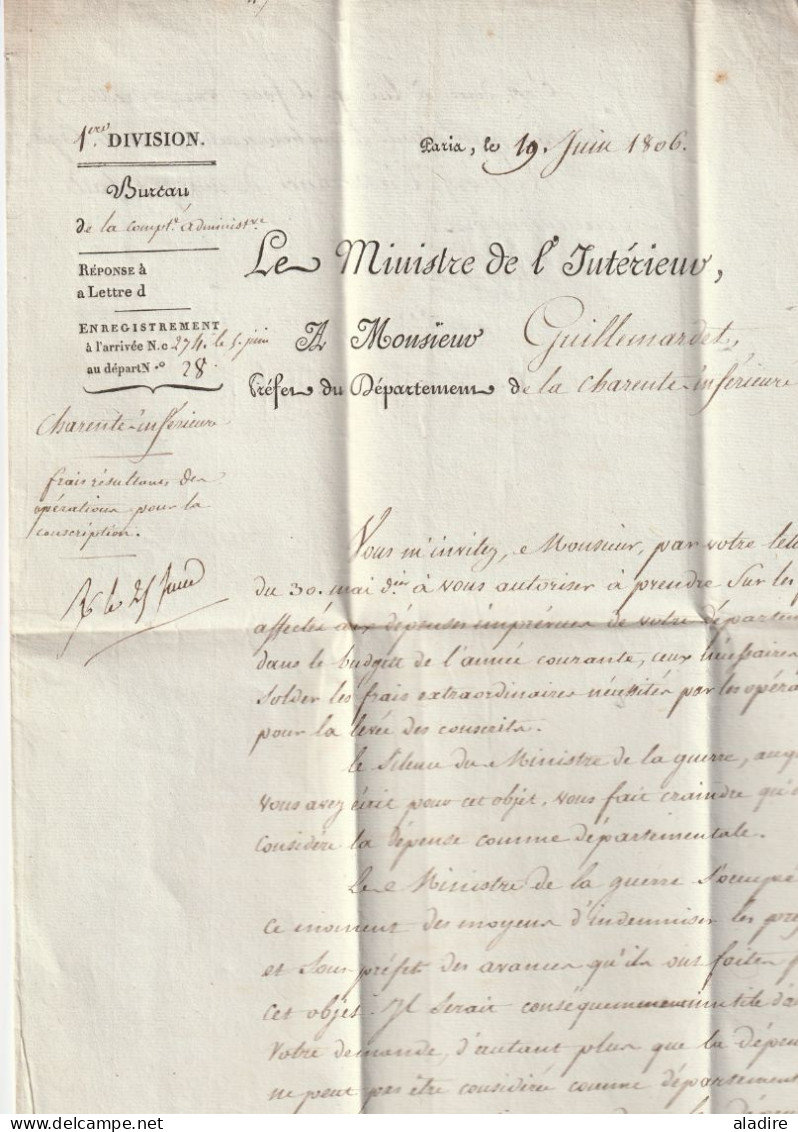 1ere DIVISION.
Bureau
de la compt.é administ.ve
RÉPONSE à
a Lettre d
ENREGISTREMENT
à l'arrivée N.o 274. le 5. juin
au départ N.o 28.
Charente-inférieure
frais résultants des
opérations pour la
conscription.
R le 25 Juin
Paris, le 19. Juin 1806.
Le Ministre de l'Intérieur,
A Monsieur Guillemardet,
Préfet du Département de la Charente-inférieure
Vous m'invitez, Monsieur, par votre lett
du 30. mai d.er à vous autoriser à prendre sur les
affectés aux dépenses imprévues de votre départem
dans le budget de l'année courante, ceux nécessaires
solder les frais extraordinaires nécessités par les opéra
pour la levée des conscrits.
le silence du Ministre de la guerre, auq
vous avez écrit pour cet objet, vous fait craindre qu'i
considère la dépense comme départementale.
Le Ministre de la guerre s'occupe
ce moment des moyens d'indemniser les pré
et sous-préfets des avances qu'ils ont faites p
cet objet. Il serait conséquemment inutile d'a
votre demande, d'autant plus que la dépen
ne peut pas être considérée comme département
la dépen
aladire